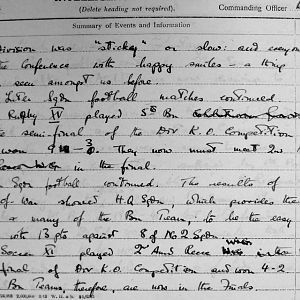 (Delete heading not required).
Commanding Officer
Summary of Events and Information
Division was "sticky" or slow: and everyone
the Conference with happy smiles - a thing
seen amongst us before.
Inter Sqdn football matches continued.
Rugby XV played 5th Bn
semi-final of the Div K.O. Competition
won 9-3. They now must meet 2nd
in the final.
Sqdn football continued. The results of
of War showed H.Q Sqdn, which provides the
& many of the Bn Team, to be the easy
with 13 pts against 8 of No 2 Sqdn.
Soccer XI played 2nd Armd Recce when in the
final of Div K.O. Competition and won 4-2
Bn Teams, therefore, are now in the Finals.